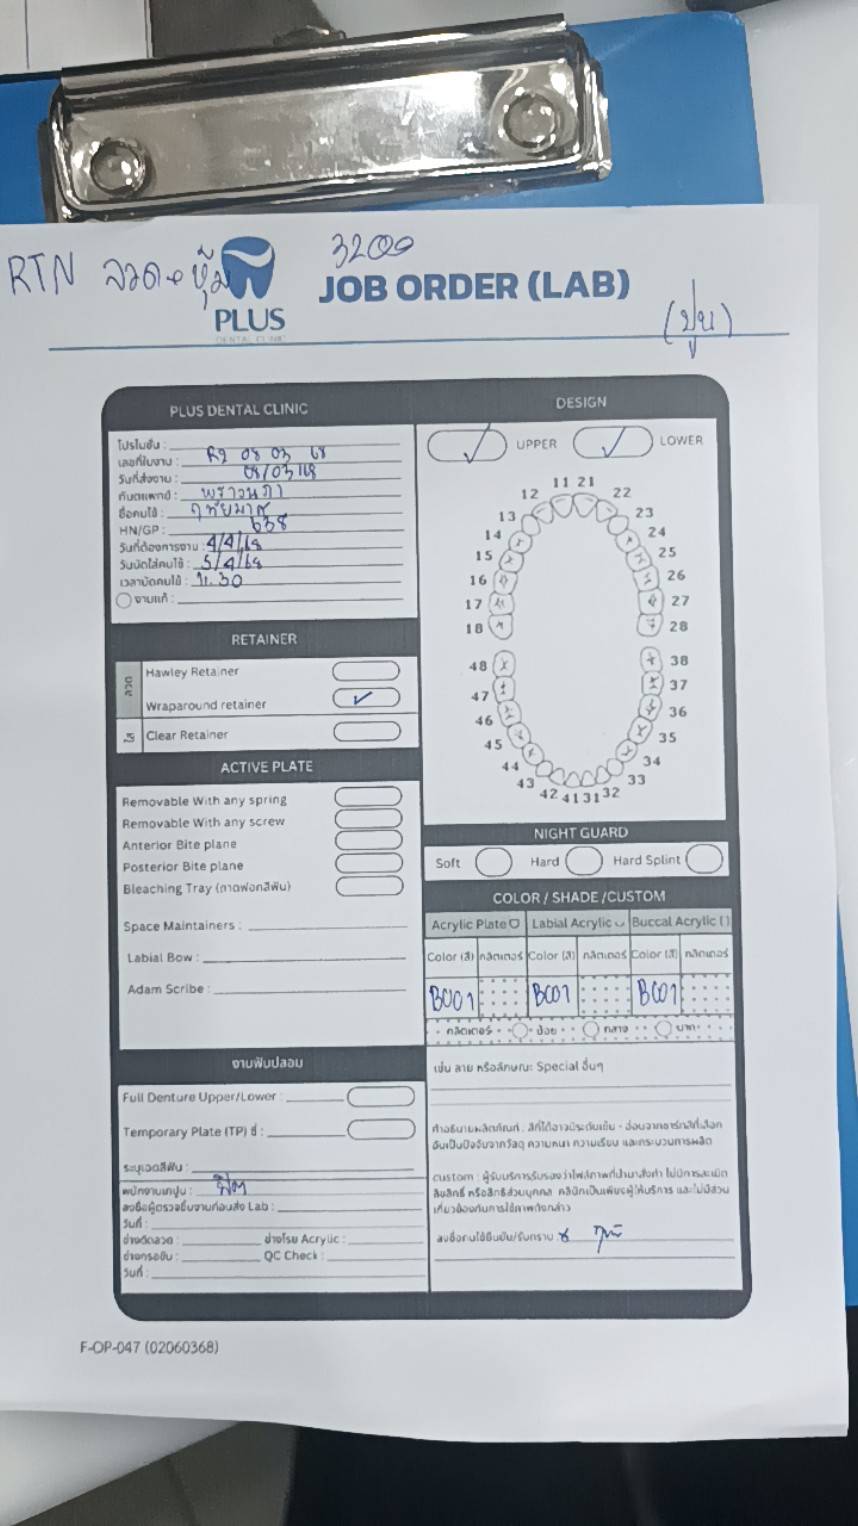 RTN ลวด+หุ้ม
3200
PLUS
DENTAL CLINIC
JOB ORDER (LAB)
(ปูน)
PLUS DENTAL CLINIC
โปรโมชั่น :
เลขที่ใบงาน : R9 08 03 68
วันที่ส่งงาน : 08/03/68
ทันตแพทย์ :
ชื่อคนไข้ :
HN/GP : 638
วันที่ต้องการงาน : 4/4/68
วันนัดใส่คนไข้ : 5/4/68
เวลานัดคนไข้ : 11.30
งานแก้ :
RETAINER
ลวด
Hawley Retainer
Wraparound retainer
ใส
Clear Retainer
ACTIVE PLATE
Removable With any spring
Removable With any screw
Anterior Bite plane
Posterior Bite plane
Bleaching Tray (ถาดฟอกสีฟัน)
Space Maintainers :
Labial Bow :
Adam Scribe :
งานฟันปลอม
Full Denture Upper/Lower :
Temporary Plate (TP) ซี่ :
ระบุเฉดสีฟัน :
พนักงานเทปูน :
ลงชื่อผู้ตรวจชิ้นงานก่อนส่ง Lab :
วันที่ :
ช่างดัดลวด : ช่างโรย Acrylic :
ช่างกรอขัด : QC Check :
วันที่ :
DESIGN
UPPER LOWER
11 21
12 22
13 23
14 24
15 25
16 26
17 27
18 28
48 38
47 37
46 36
45 35
44 34
43 33
42 41 31 32
NIGHT GUARD
Soft Hard Hard Splint
COLOR / SHADE /CUSTOM
Acrylic Plate Labial Acrylic Buccal Acrylic
Color (สี) กลิตเตอร์ Color (สี) กลิตเตอร์ Color (สี) กลิตเตอร์
BC01 BC01 BC01
กลิตเตอร์ น้อย กลาง มาก
เช่น ลาย หรือลักษณะ Special อื่นๆ
คำอธิบายผลิตภัณฑ์ : สีที่ได้อาจมีระดับเข้ม - อ่อนจากชาร์ทสีที่เลือก
อันเป็นปัจจัยจากวัสดุ ความหนา ความเรียบ และกระบวนการผลิต
custom : ผู้รับบริการรับรองว่าไฟล์ภาพที่นำมาสั่งทำ ไม่มีการละเมิด
ลิขสิทธิ์ หรือสิทธิส่วนบุคคล คลินิกเป็นเพียงผู้ให้บริการ และไม่มีส่วน
เกี่ยวข้องกับการใช้ภาพดังกล่าว
ลงชื่อคนไข้ยืนยัน/รับทราบ
F-OP-047 (02060368)